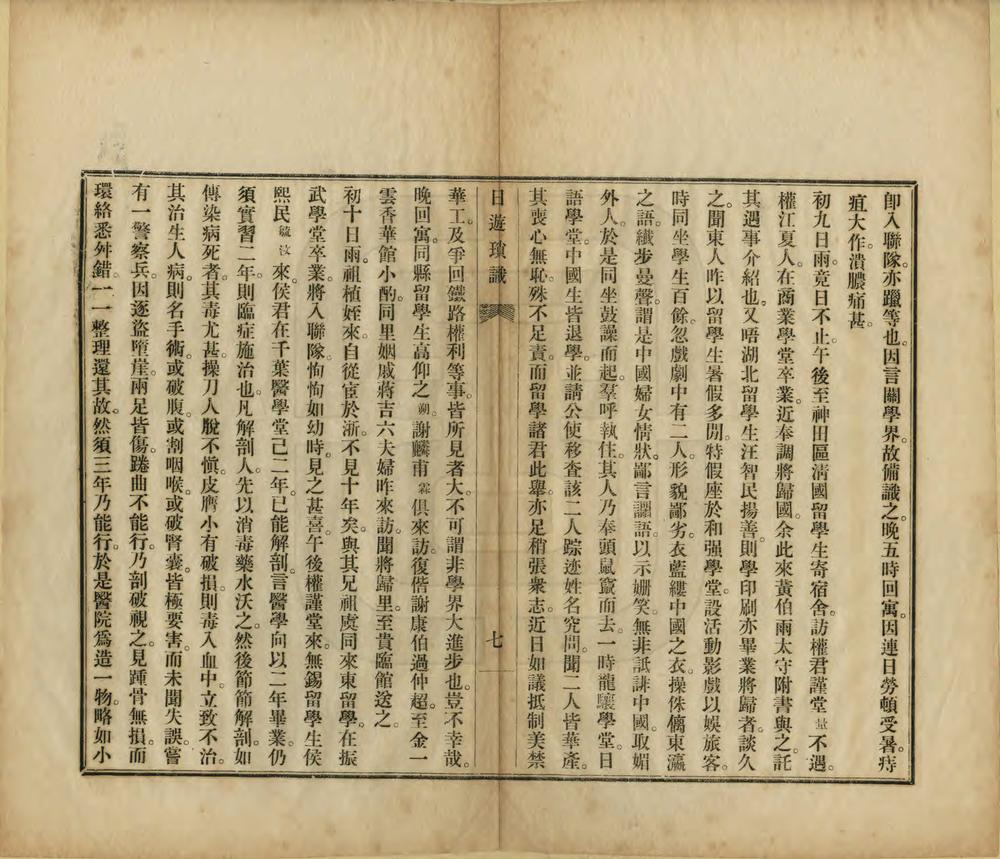 卽入聯隊。亦躐等也。因言關學界。故備識之。晚五時回寓。因連日勞頓受暑。痔
疽大作。潰膿痛甚。
初九日雨。竟日不止。午後至神田區淸國留學生寄宿舍。訪權君謹堂量不遇。
權江夏人。在商業學堂卒業。近奉調將歸國。余此來黃伯雨太守附書與之。託
其遇事介紹也。又晤湖北留學生汪智民揚善。則學印刷亦畢業將歸者。談久
之。聞東人昨以留學生暑假多閒。特假座於和强學堂。設活動影戲以娛旅客。
時同坐學生百餘。忽戲劇中有二人。形貌鄙劣。衣藍縷中國之衣。操侏𠌯東瀛
之語。纖步曼聲。謂是中國婦女情狀。鄙言讕語。以示姍笑。無非詆誹中國。取媚
外人。於是同坐鼓譟而起。羣呼執住。其人乃奉頭鼠竄而去。一時龍驤學堂。日
語學堂。中國生皆退學。並請公使移查該二人踪迹姓名究問。聞二人皆華產。
其喪心無恥。殊不足責。而留學諸君此舉。亦足稍張衆志。近日如議抵制美禁
日遊瑣識
七
華工。及爭回鐵路權利等事。皆所見者大。不可謂非學界大進步也。豈不幸哉。
晚回寓。同縣留學生高仰之朔。謝麟甫霖。俱來訪。復偕謝康伯過仲超。至金一
雲香華館小酌。同里姻戚蔣吉六夫婦昨來訪。聞將歸里。至貴臨館送之。
初十日雨。祖植姪來。自從宦於浙。不見十年矣。與其兄祖虔同來東留學。在振
武學堂卒業。將入聯隊。恂恂如幼時。見之甚喜。午後權謹堂來。無錫留學生侯
熙民毓汶來。侯君在千葉醫學堂已二年。已能解剖。言醫學向以二年畢業。仍
須實習二年。則臨症施治也。凡解剖人。先以消毒藥水沃之。然後節節解剖。如
傳染病死者。其毒尤甚。操刀人脫不愼。皮膚小有破損。則毒入血中。立致不治。
其治生人病。則名手術。或破腹。或割咽喉。或破腎囊。皆極要害。而未聞失誤。嘗
有一警察兵。因逐盜墮崖。兩足皆傷。踡曲不能行。乃剖破視之。見踵骨無損。而
環絡悉舛錯。一一整理還其故。然須三年乃能行。於是醫院爲造一物。略如小